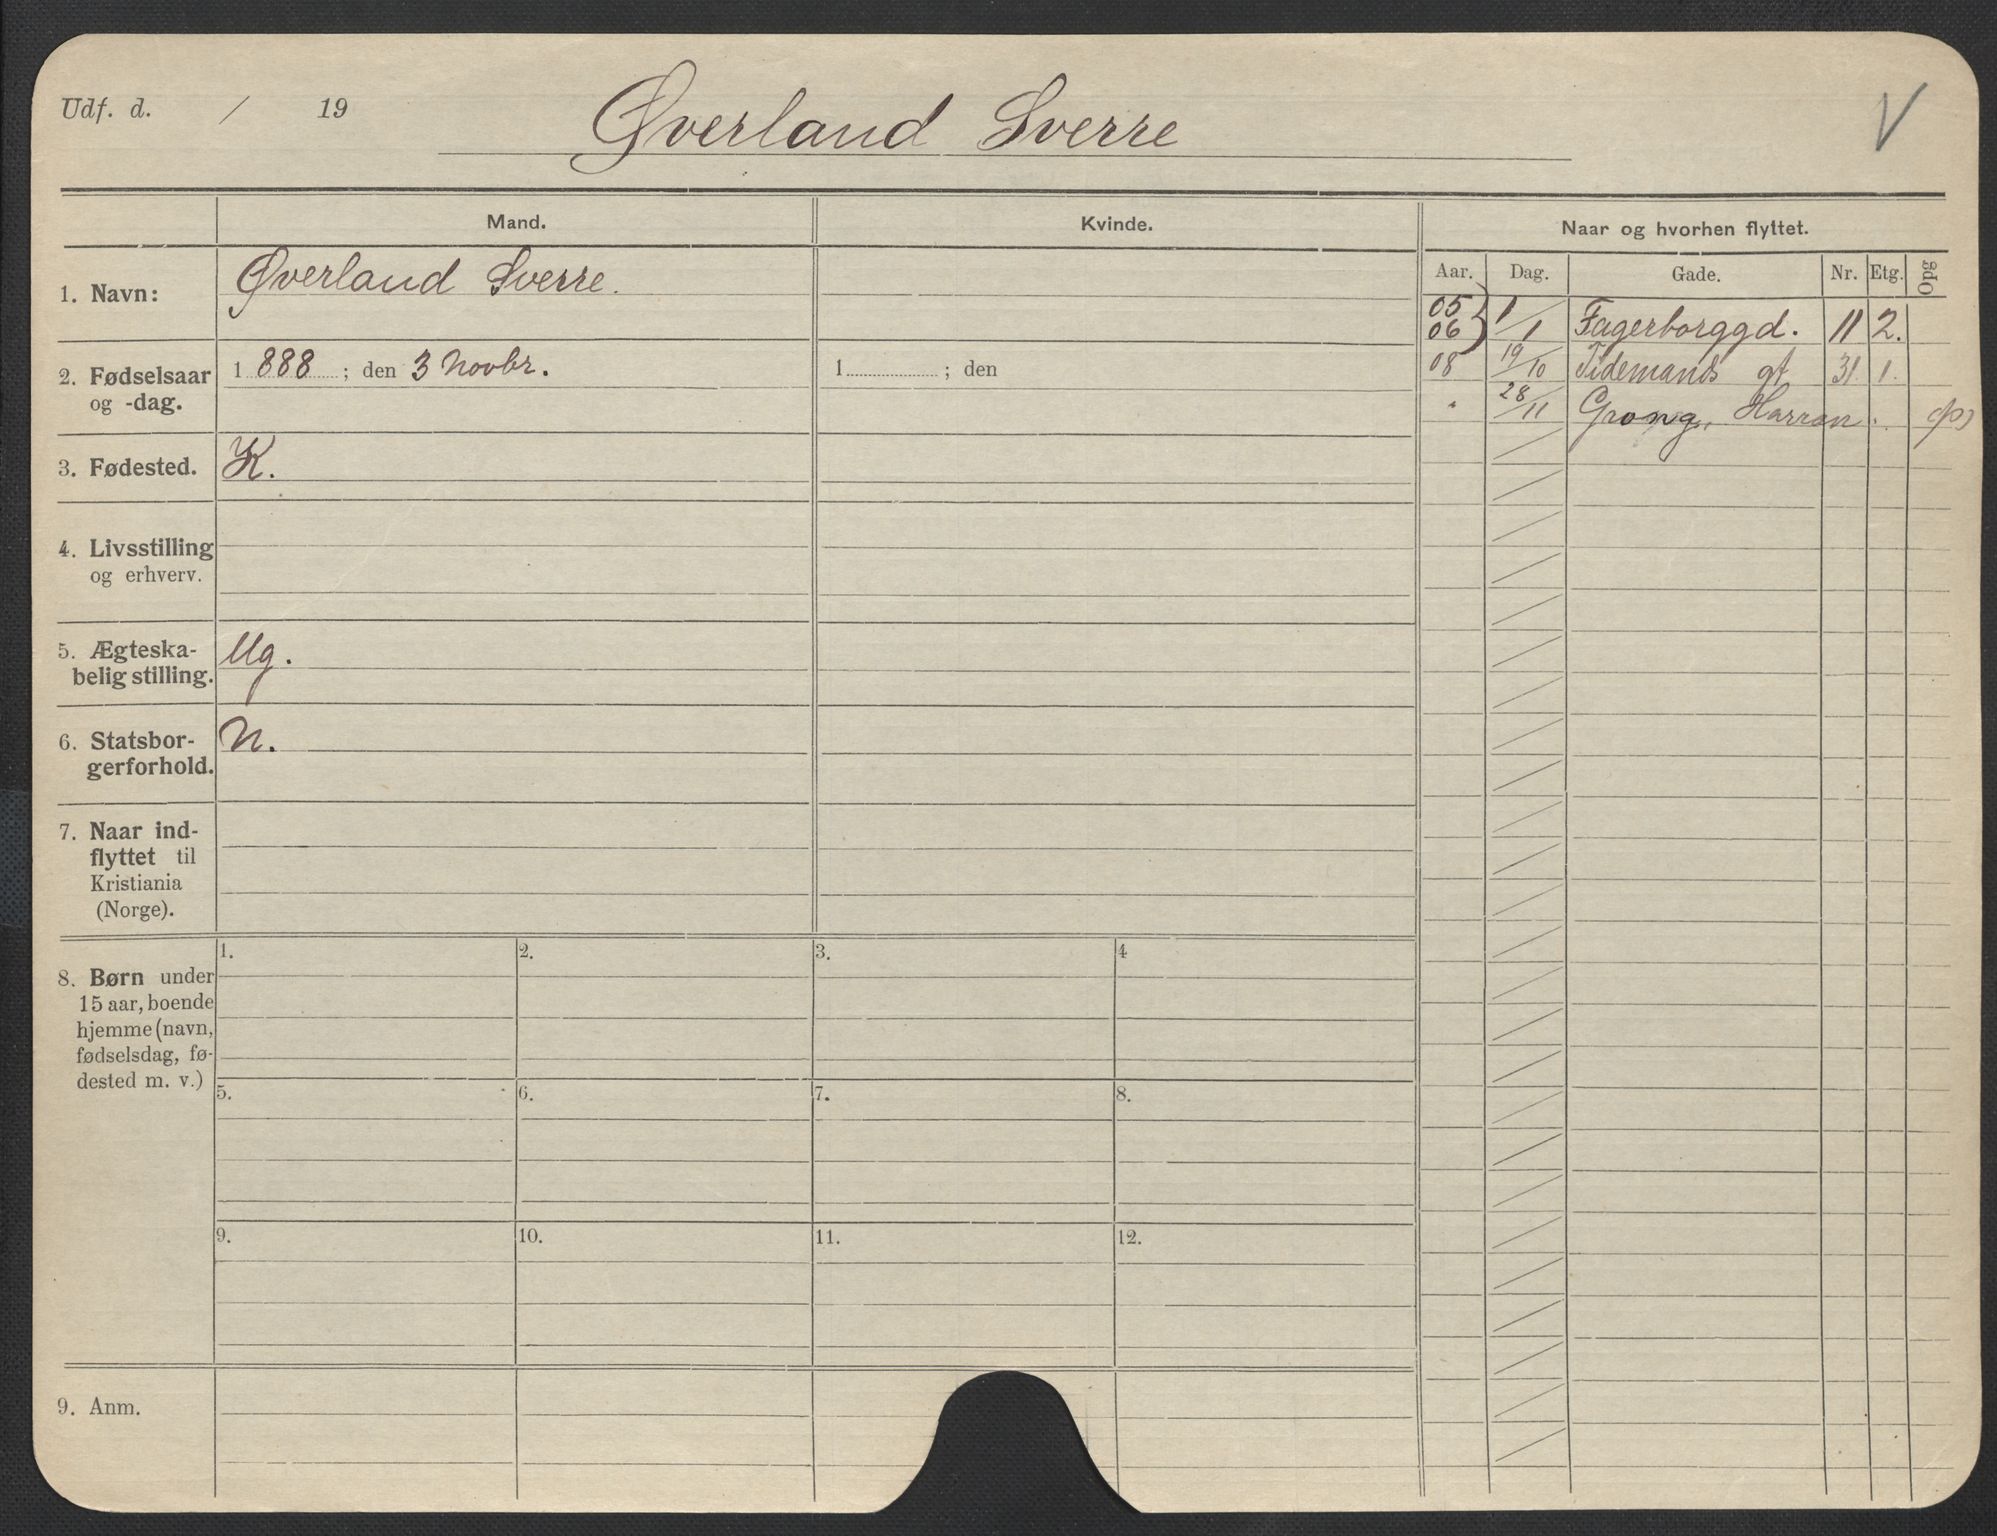 Udf. d. / 19
Øverland Sverre
V
Mand.
Kvinde.
Naar og hvorhen flyttet.
Aar. Dag. Gade. Nr. Etg. Opg
1. Navn:
Øverland Sverre.
2. Fødselsaar
og -dag.
1 888 ; den 3 Novbr.
1 ; den
3. Fødested.
K.
4. Livsstilling
og erhverv.
5. Ægteska-
belig stilling.
Ug.
6. Statsbor-
gerforhold.
N.
7. Naar ind-
flyttet til
Kristiania
(Norge).
8. Børn under
15 aar, boende
hjemme (navn,
fødselsdag, fø-
dested m. v.)
1. 2. 3. 4
5. 6. 7. 8.
9. 10. 11. 12.
9. Anm.
05
06 } 1/1 Fagerborggd. 11 2.
08 19/10 Tidemands gt 31. 1.
" 28/11 Grong, Harran.